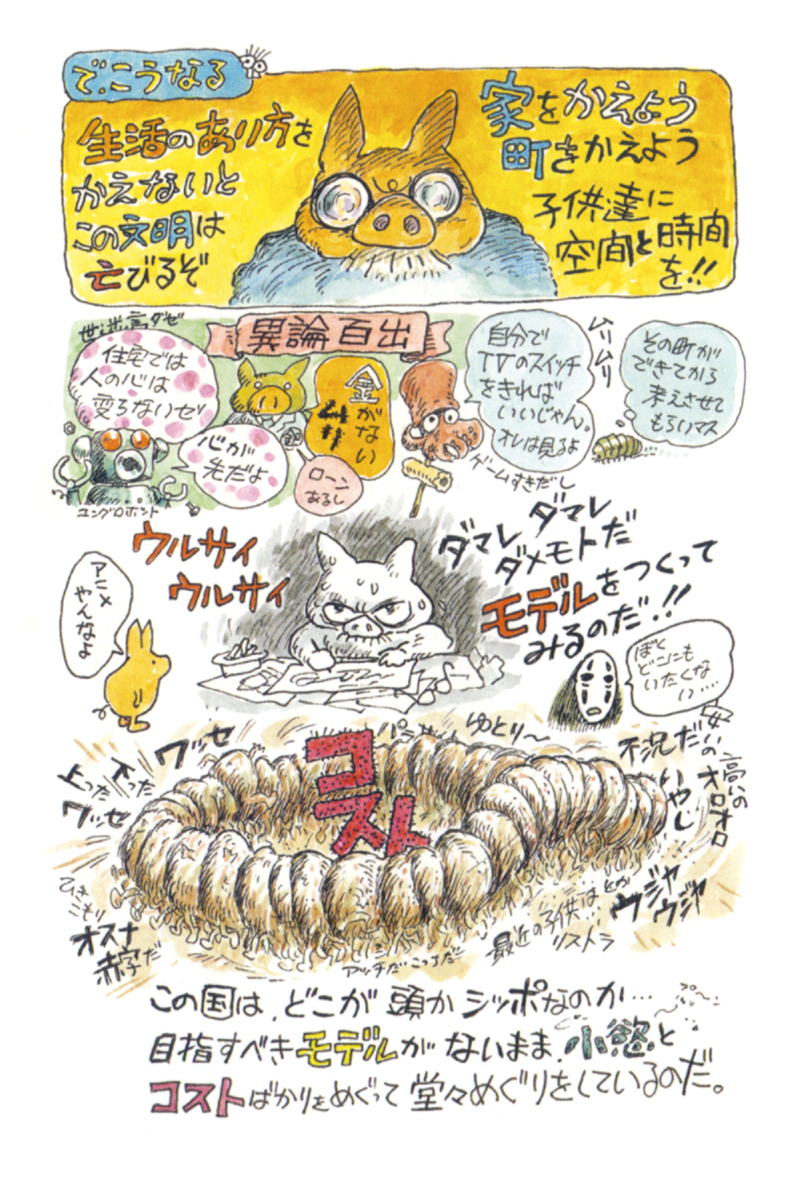 で、こうなる
家をかえよう
町をかえよう
子供達に
空間と時間
を!!
生活のあり方を
かえないと
この文明は
亡びるぞ
異論百出
世迷言ダゼ
住宅では
人の心は
変らないゼ
心が
先だよ
ユングロボット
金がない
ローン
あるし
自分で
TVのスイッチ
をきれば
いいじゃん。
オレは見るよ
ゲームすきだし
ムリムリ
その町が
できてから
考えさせて
もらいマス
ウルサイ
ウルサイ
ダマレ ダマレ
ダメモトだ
モデルをつくって
みるのだ!!
アニメ
やんなよ
ぼく
どこにも
いたくな
い……
コスト
ゆとり〜
不況だ
いやし
安いの
高いの
オロオロ
ワッセ
下った
上った
ワッセ
ひき
こもり
オスナ
赤字だ
アッチだこっちだ
最近の子供はとか
リストラ
ウジャ
ウジャ
この国は、どこが頭かシッポなのか…
目指すべきモデルがないまま、小慾と
コストばかりをめぐって堂々めぐりをしているのだ。